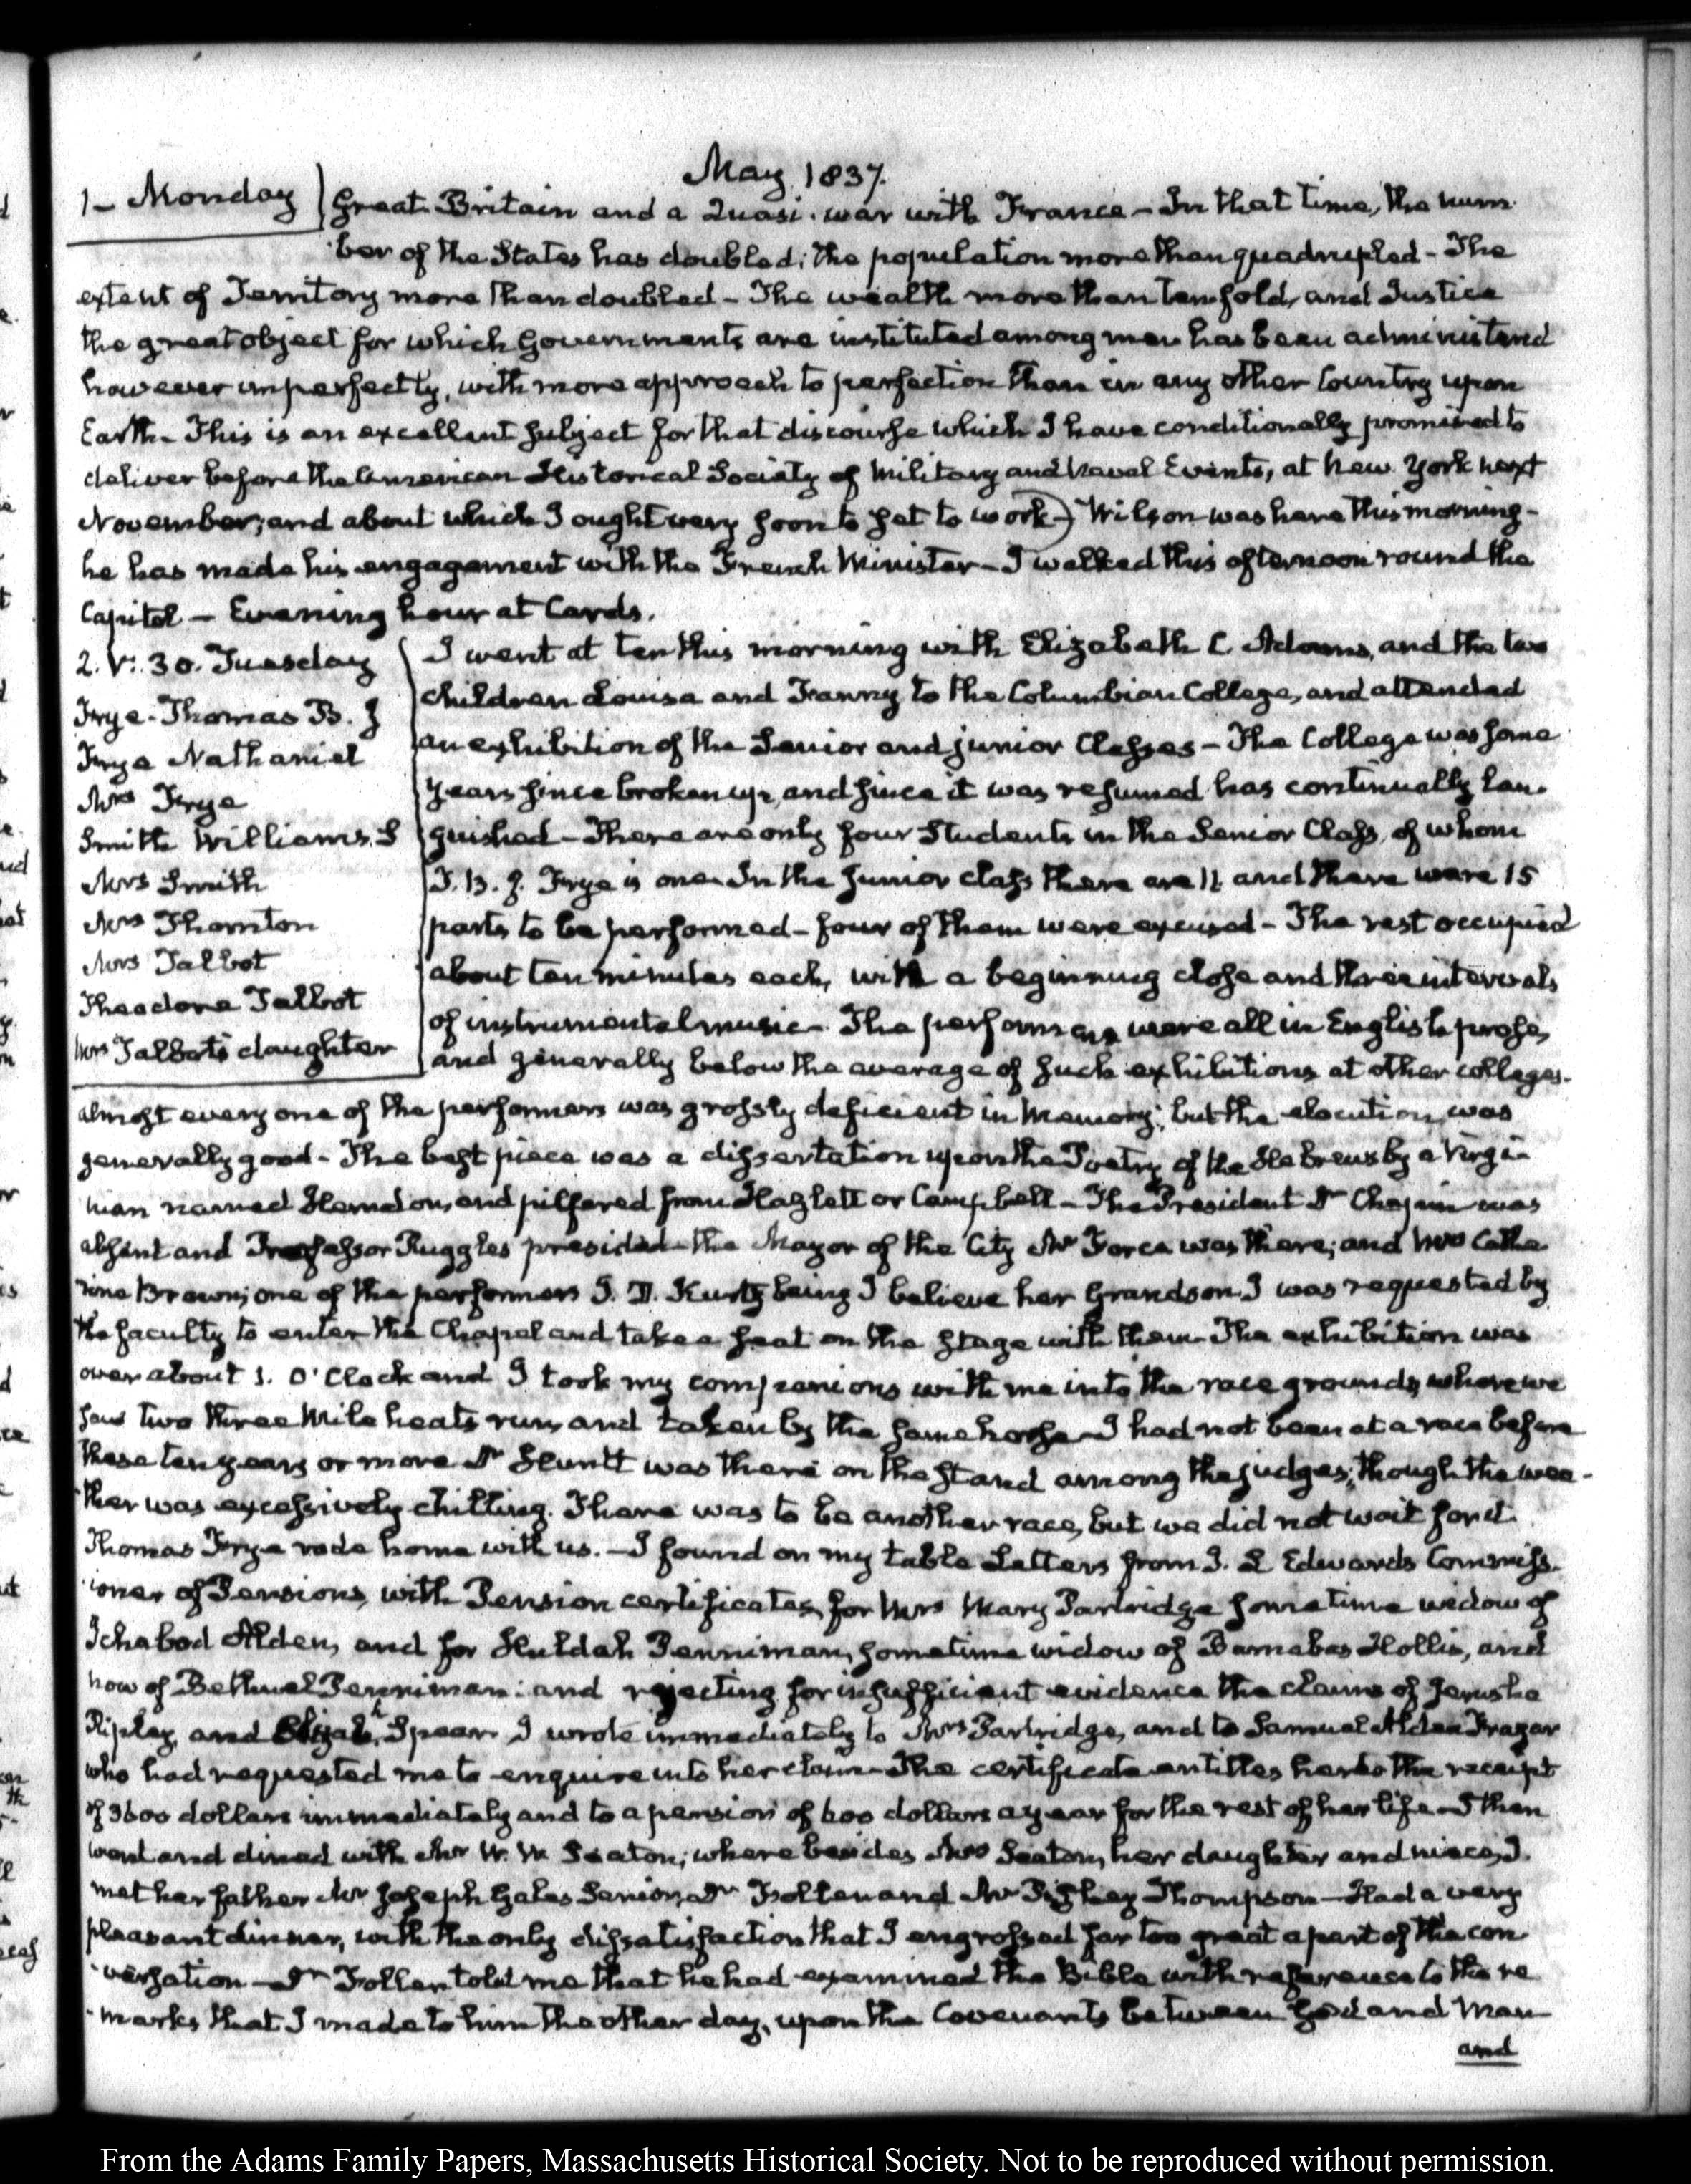 May 1837.
1 - Monday
Great Britain and a Quasi-war with France - In that time, the num
ber of the States has doubled; the population more than quadrupled - The
extent of Territory more than doubled - The wealth more than tenfold, and Justice
the great object for which Governments are instituted among men has been administered
however imperfectly, with more approach to perfection than in any other Country upon
Earth - This is an excellent subject for that discourse which I have conditionally promised to
deliver before the American Historical Society of Military and Naval Events, at New York next
November; and about which I ought very soon to set to work -) Wilson was here this morning -
he has made his engagement with the French Minister - I walked this afternoon round the
Capitol - Evening hour at Cards.
2. V: 30. Tuesday
Frye - Thomas B. J
Frye Nathaniel
Mrs Frye
Smith William S
Mrs Smith
Mrs Thornton
Mrs Talbot
Theodore Talbot
Mrs Talbot's daughter
I went at ten this morning with Elizabeth C. Adams, and the two
children Louisa and Fanny to the Columbian College, and attended
an exhibition of the Senior and junior Classes - The College was some
years since broken up, and since it was resumed has continually lan-
guished - There are only four Students in the Senior Class, of whom
T. B. J. Frye is one. In the junior class there are 11 and there were 15
parts to be performed - four of them were excused - The rest occupied
about ten minutes each, with a beginning close and three intervals
of instrumental music - The performers were all in English prose,
and generally below the average of such exhibitions at other colleges.
almost every one of the performers was grossly deficient in memory; but the elocution was
generally good - The best piece was a dissertation upon the Poetry of the Hebrews by a Virgi-
nian named Herndon, and pilfered from Hazlett or Campbell - The President Dr Chapin was
absent and Professor Ruggles presided - the Mayor of the City Mr Force was there; and Mrs Cathe
rine Brown; one of the performers J. D. Kurtz being I believe her Grandson. I was requested by
the faculty to enter the Chapel and take a seat on the stage with them - The exhibition was
over about 1. O'Clock and I took my companions with me into the race grounds, where we
saw two three mile heats run, and taken by the same horse - I had not been at a race before
these ten years or more Dr Huntt was there on the stand among the judges; though the wea-
ther was excessively chilling. There was to be another race, but we did not wait for it.
Thomas Frye rode home with us. - I found on my table Letters from J. L Edwards Commiss-
ioner of Pensions, with Pension certificates, for Mrs Mary Partridge sometime widow of
Ichabod Alden, and for Huldah Penniman, sometime widow of Barnabas Hollis, and
now of Bethuel Penniman: and rejecting for insufficient evidence the claims of Jerusha
Ripley, and Elizabh Spear. I wrote immediately to Mrs Partridge, and to Samuel Alden Frazar
who had requested me to enquire into her claim - The certificate entitles her to the receipt
of 3600 dollars immediately and to a pension of 600 dollars a year for the rest of her life - I then
went and dined with Mr W. W. Seaton; where besides Mrs Seaton, her daughter and niece, I.
met her father Mr Joseph Gales Senior, Dr Follen and Mr Pishey Thompson - Had a very
pleasant dinner, with the only dissatisfaction that I engrossed far too great a part of the con
versation - Dr Follen told me that he had examined the Bible with reference to the re
marks that I made to him the other day, upon the Covenants between God and Man
and
From the Adams Family Papers, Massachusetts Historical Society. Not to be reproduced without permission.